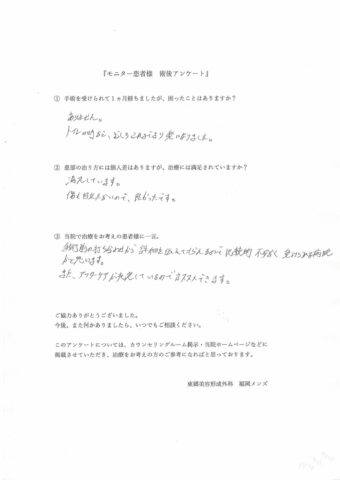 『モニター患者様　術後アンケート』
① 手術を受けられて1ヵ月経ちましたが、困ったことはありますか？
ありません。
トイレの時など、むしろこれまでより楽になりました。
② 患部の治り方には個人差はありますが、治療には満足されていますか？
満足しています。
傷も目立たないので、良かったです。
③ 当院で治療をお考えの患者様に一言。
から 詳細を 不安なく 受けられる病院
だと思います。
また、アフターケアが充実しているのでオススメできます。
ご協力ありがとうございました。
今後、また何かありましたら、いつでもご相談ください。
このアンケートについては、カウンセリングルーム掲示・当院ホームページなどに
掲載させていただき、治療をお考えの方のご参考になればと思っております。
東郷美容形成外科　福岡メンズ